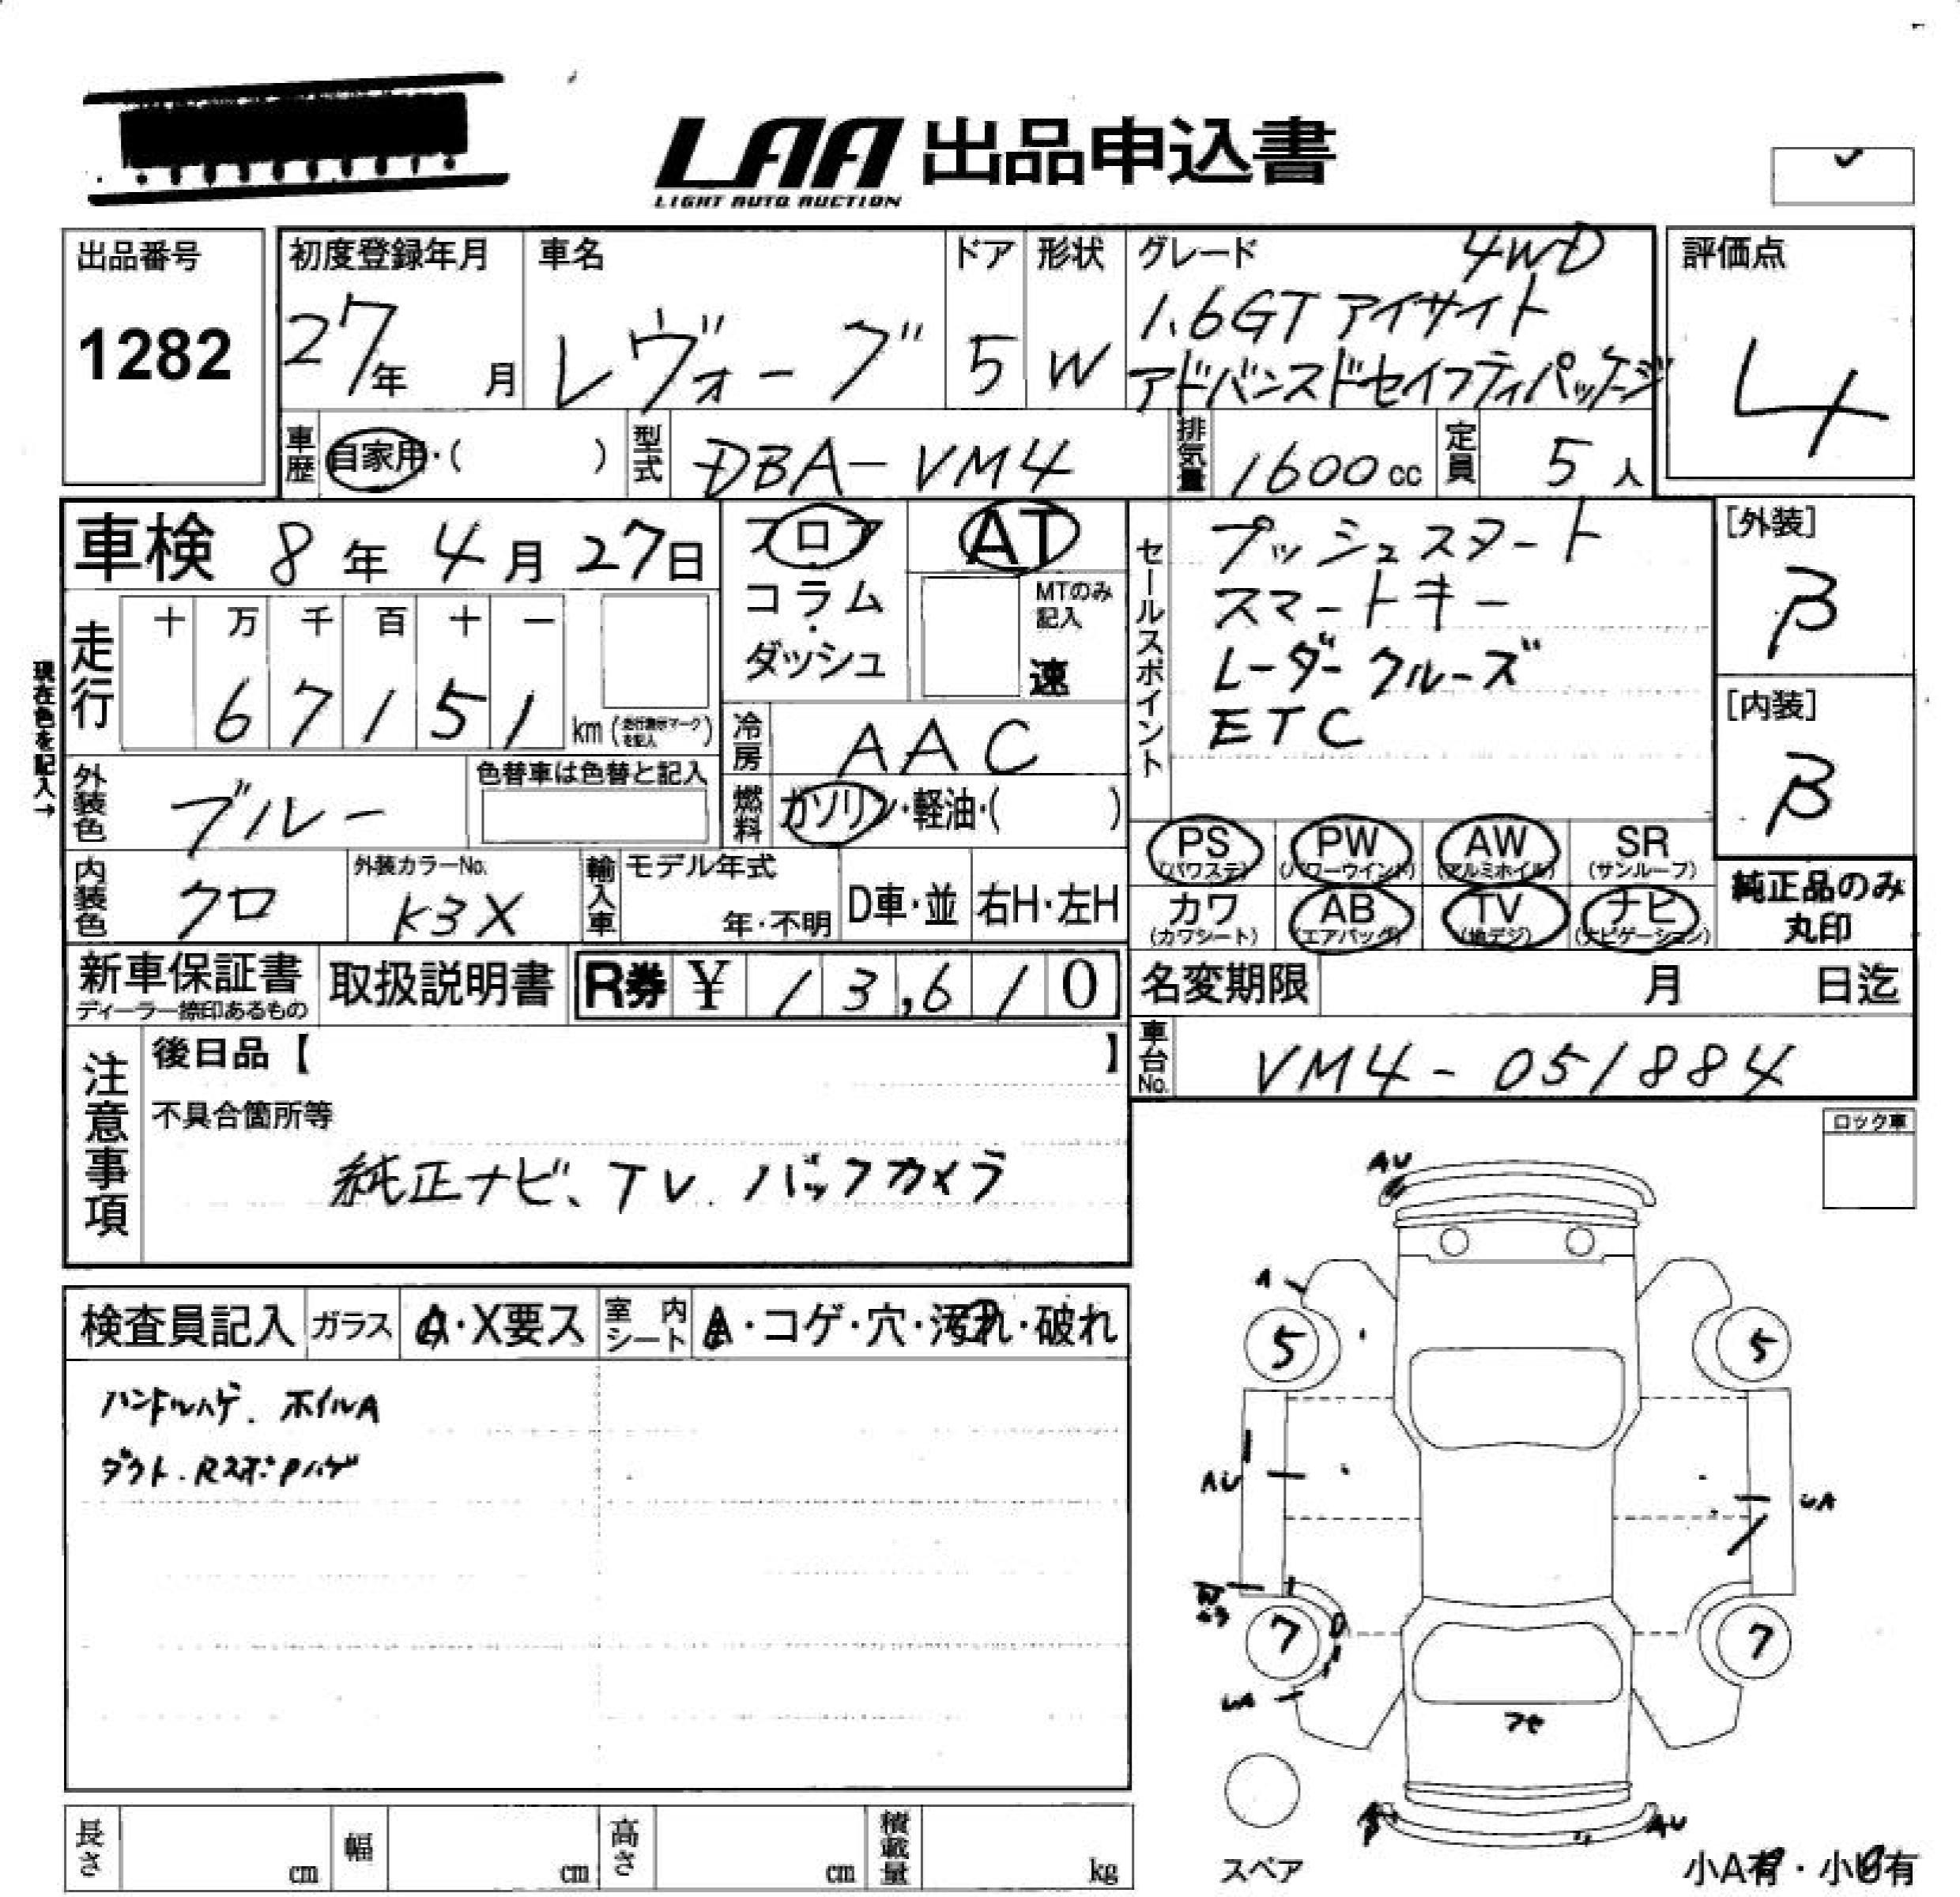 LAA 出品申込書
LIGHT AUTO AUCTION
出品番号
1282
初度登録年月
27年 月
車名
レヴォーグ
ドア
5
形状
W
グレード
4WD
1.6GT アイサイト
アドバンスドセイフティパッケージ
評価点
4
車歴
自家用・( )
型式
DBA-VM4
排気量
1600cc
定員
5人
車検 8年 4月 27日
走行
十 万 千 百 十 一
6 7 1 5 1 km (走行表示マークを記入)
現在色を記入→
フロア
コラム
・
ダッシュ
AT
MTのみ記入
速
冷房
AAC
燃料
ガソリン・軽油・( )
セールスポイント
プッシュスタート
スマートキー
レーダークルーズ
ETC
[外装]
β
[内装]
β
外装色
ブルー
色替車は色替と記入
内装色
クロ
外装カラーNo.
K3X
輸入車
モデル年式
年・不明
D車・並
右H・左H
PS (パワステ)
PW (パワーウインド)
AW (アルミホイル)
SR (サンルーフ)
カワ (カワシート)
AB (エアバッグ)
TV (地デジ)
ナビ (ナビゲーション)
純正品のみ
丸印
新車保証書
ディーラー捺印あるもの
取扱説明書
R券 ¥ 13,610
名変期限 月 日迄
車台No.
VM4-051884
注意事項
後日品【 】
不具合箇所等
純正ナビ、TV、バックカメラ
ロック車
検査員記入
ガラス
A・X要ス
室内シート
A・コゲ・穴・汚れ・破れ
ハンドルハゲ、ホイルA
ダクト.RスポP ハゲ
AU
A
5
5
AU
UA
7
7
UA
フセ
AU
スペア
小A有・小U有
長さ cm
幅 cm
高さ cm
積載量 kg